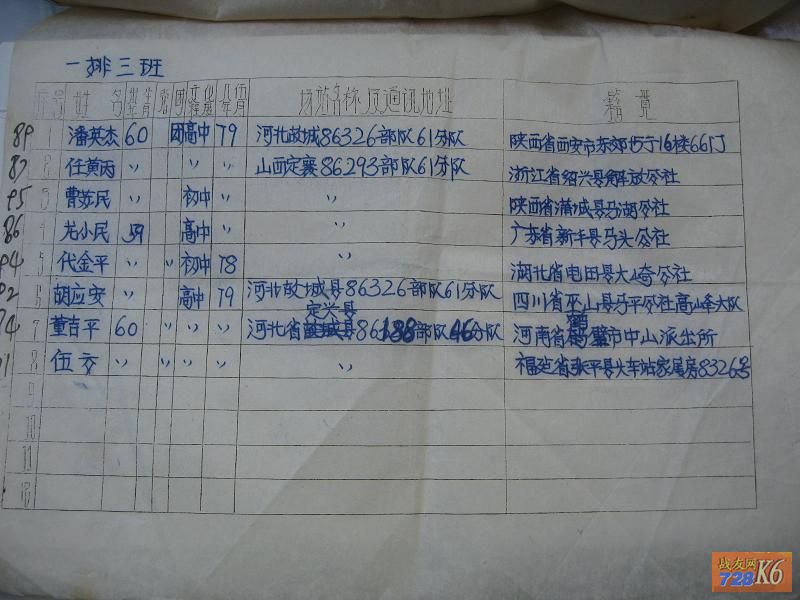 一排三班
序号 姓名 出生年 党团 文化程度 入伍年月 场站名称及通讯地址 籍贯
89 1 潘英杰 60 团 高中 79 河北故城86326部队61分队 陕西省西安市东郊15街16楼66门
87 2 任黄丙 〃 〃 〃 山西定襄86293部队61分队 浙江省绍兴县解放公社
95 3 曹苏民 初中 〃 陕西省蒲城县马湖公社
86 4 龙小民 59 高中 〃 广东省新丰县马头公社
94 5 代金平 〃 〃 初中 78 湖北省 县大崎公社
92 6 胡应安 〃 高中 79 河北故城县86326部队61分队 四川省巫山县马平公社高峰大队
定兴县
74 7 董吉平 60 〃 〃 〃 河北省 86188部队46分队 河南省鹤壁市中山派出所
8 伍交 〃 〃 〃 〃 〃 福建省漳平县火车站家属房8326号
9
10
11
12
战友网
728K6